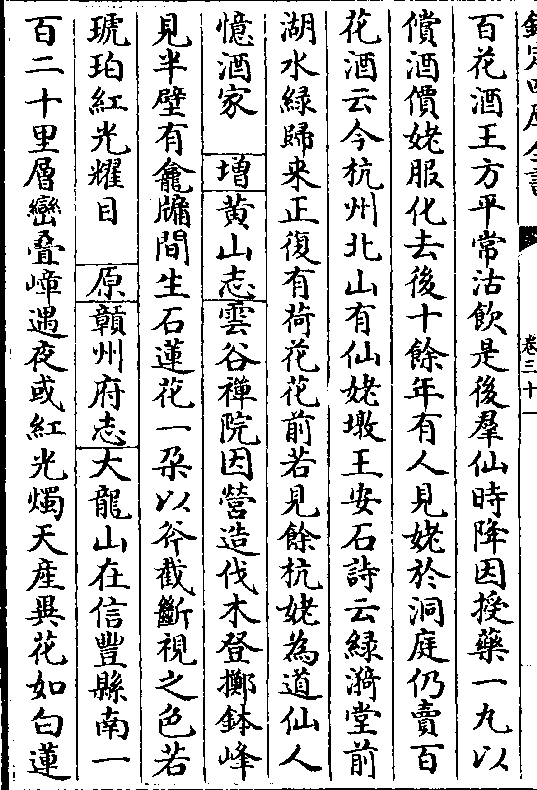 欽定四庫全書 卷三十一
百花酒王方平常沽飲是後羣仙時降因授藥一丸以
償酒價姥服化去後十餘年有人見姥於洞庭仍賣百
花酒云今杭州北山有仙姥墩王安石詩云綠漪堂前
湖水綠歸來正復有荷花花前若見餘杭姥為道仙人
憶酒家 增 黄山志 雲谷禪院因營造伐木登擲鉢峰
見半壁有龕牖間生石蓮花一朶以斧截斷視之色若
琥珀紅光耀目 原 贑州府志 大龍山在信豐縣南一
百二十里層巒叠嶂遇夜或紅光燭天産異花如白蓮